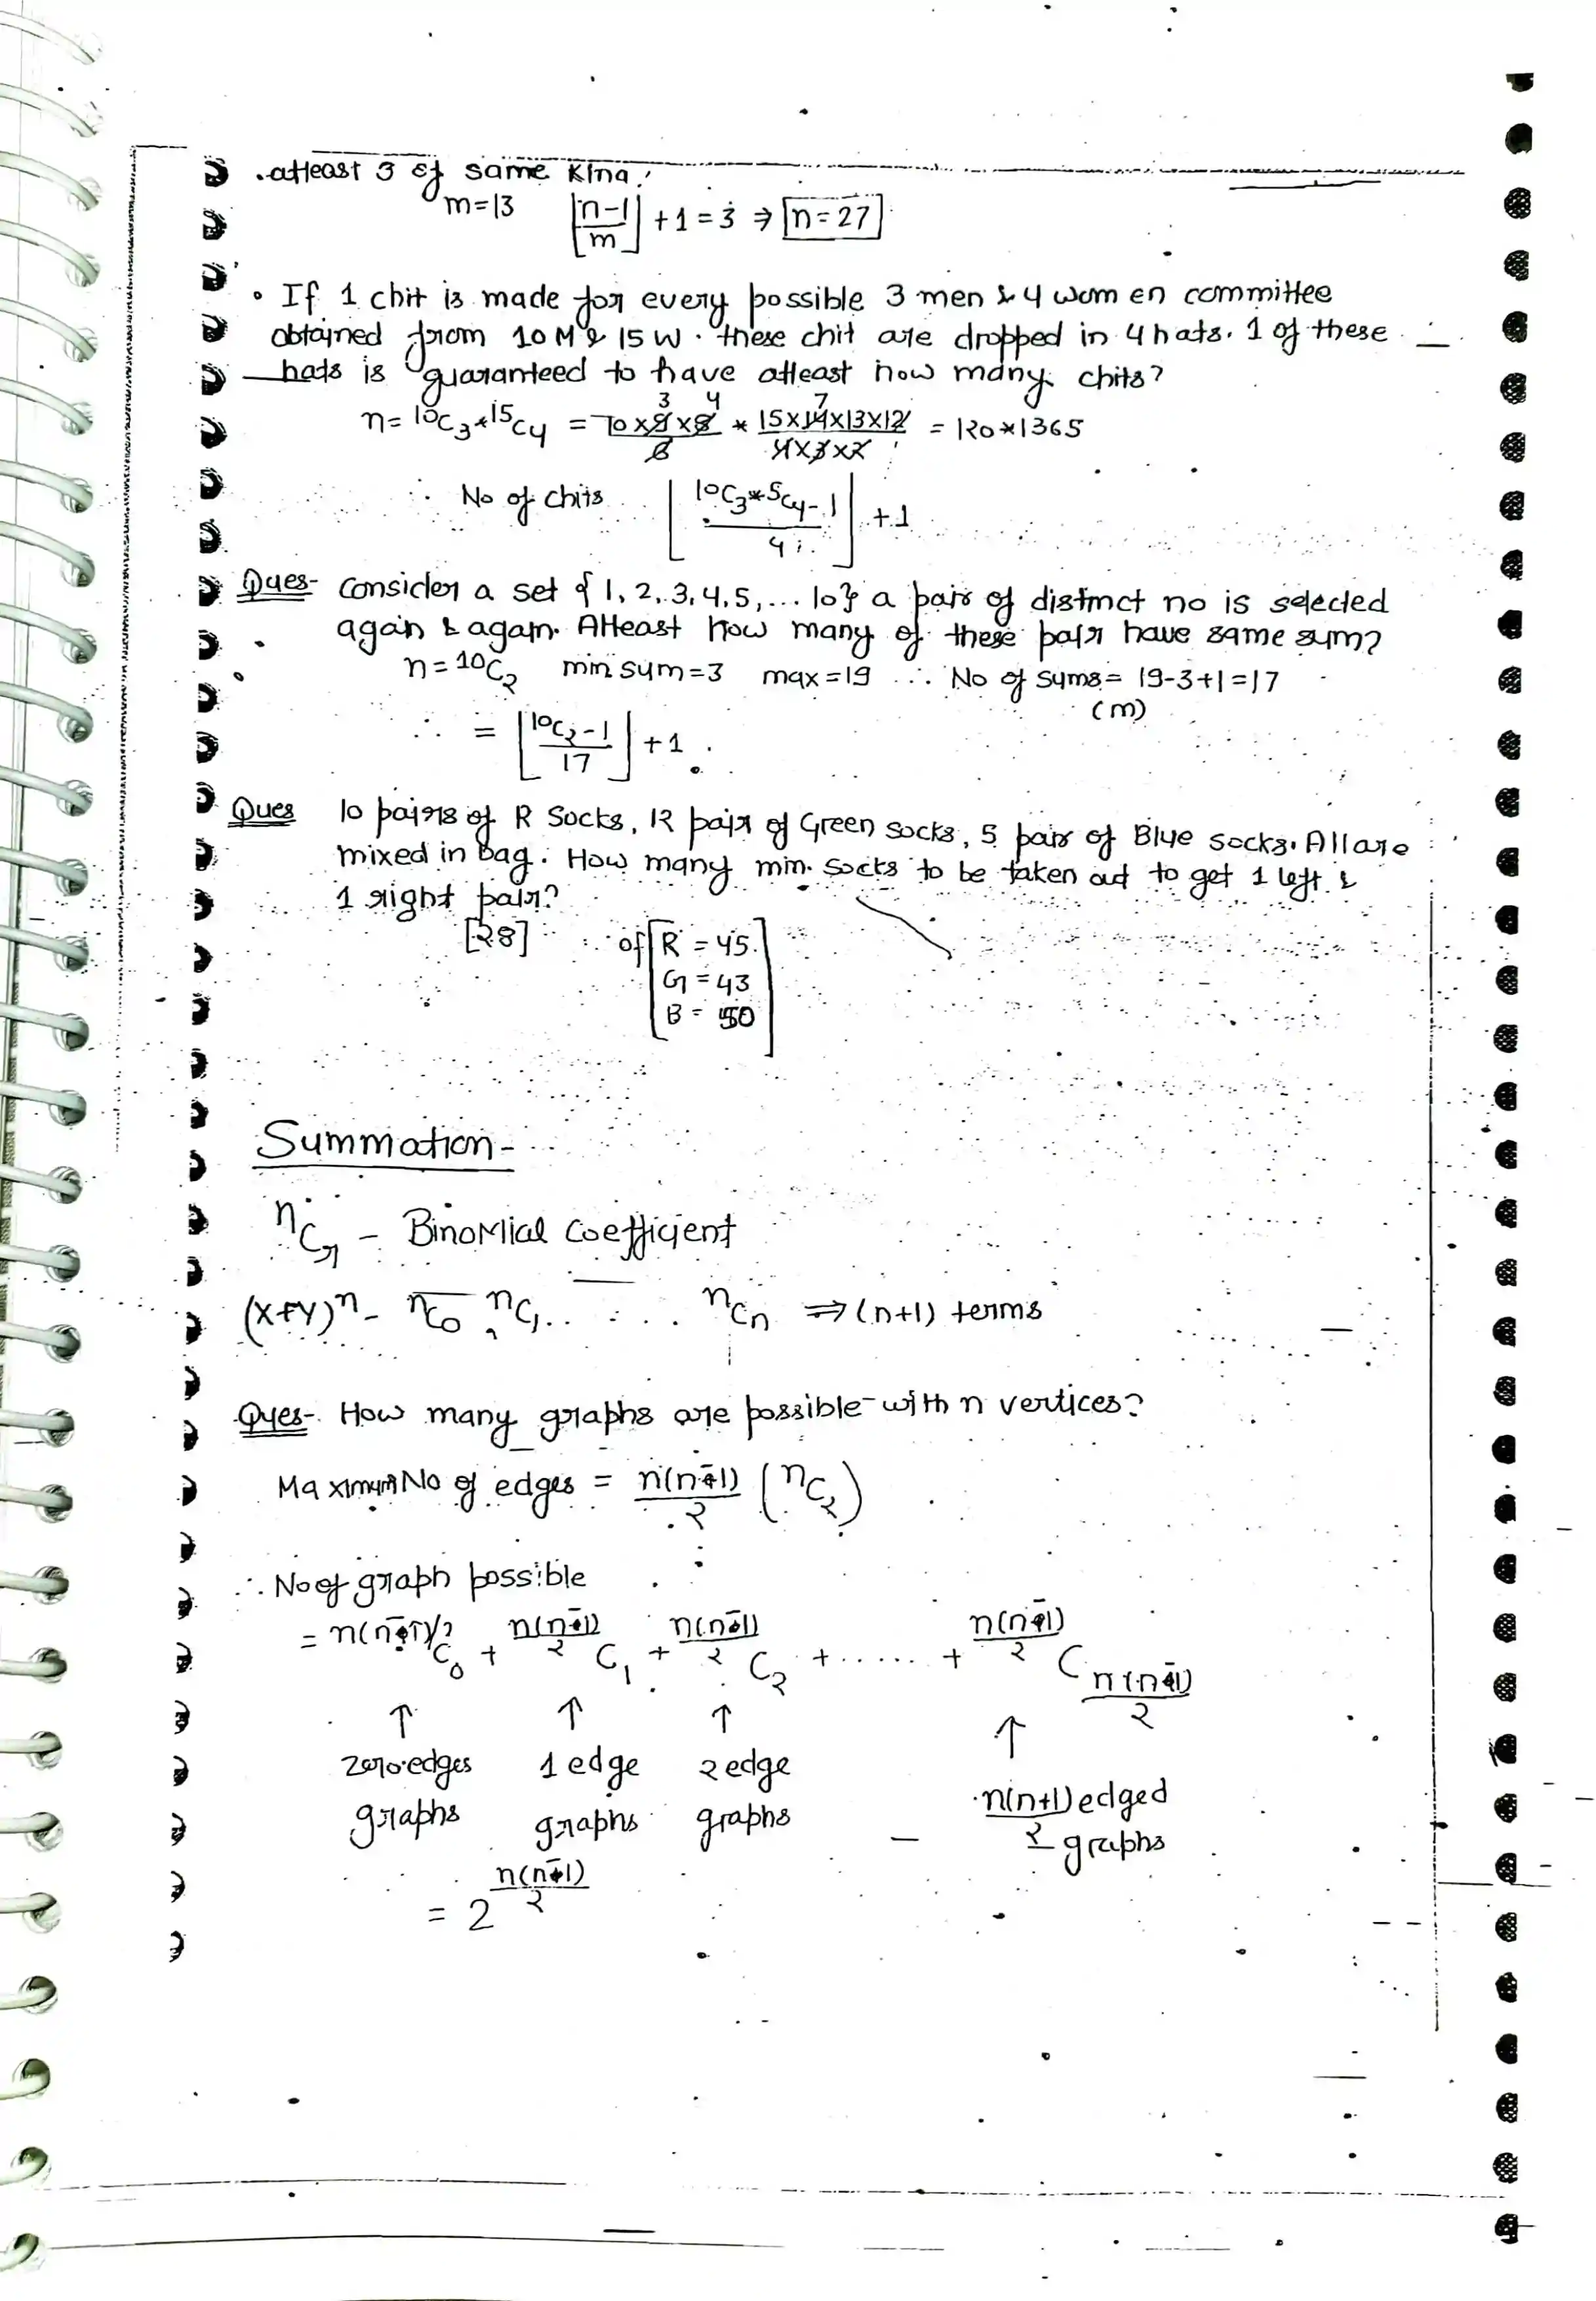 . atleast 3 of same kind.
m=13 ⌊(n-1)/m⌋ + 1 = 3 ⇒ n = 27
• If 1 chit is made for every possible 3 men & 4 women committee
obtained from 10 M & 15 W. these chit are dropped in 4 hats. 1 of these
hats is guaranteed to have atleast how many chits?
n= 10C3 * 15C4 = (10x9x8)/6 * (15x14x13x12)/(4x3x2) = 120*1365
∴ No of chits ⌊(10C3*5C4-1)/4⌋ +1
Ques- Consider a set {1, 2, 3, 4, 5, ... 10} a pair of distinct no is selected
again & again. Atleast how many of these pair have same sum?
n = 10C2 min sum=3 max=19 ∴ No of sums = 19-3+1=17
(m)
∴ = ⌊(10C2-1)/17⌋ +1.
Ques 10 pairs of R Socks, 12 pair of Green socks, 5 pair of Blue socks. All are
mixed in bag. How many min. socks to be taken out to get 1 left &
1 right pair?
[28] of [R = 45
G = 43
B = 50]
Summation-
nCr - Binomial Coefficient
(x+y)^n - nC0, nC1.. . . . nCn ⇒ (n+1) terms
Ques- How many graphs are possible with n vertices?
Maximum No of edges = n(n-1)/2 (nC2)
∴ No of graph possible
= n(n-1)/2 C0 + n(n-1)/2 C1 + n(n-1)/2 C2 + ...... + n(n-1)/2 C n(n-1)/2
↑ ↑ ↑ ↑
zero edges 1 edge 2 edge n(n+1)/2 edged
graphs graphs graphs graphs
= 2^(n(n-1)/2)